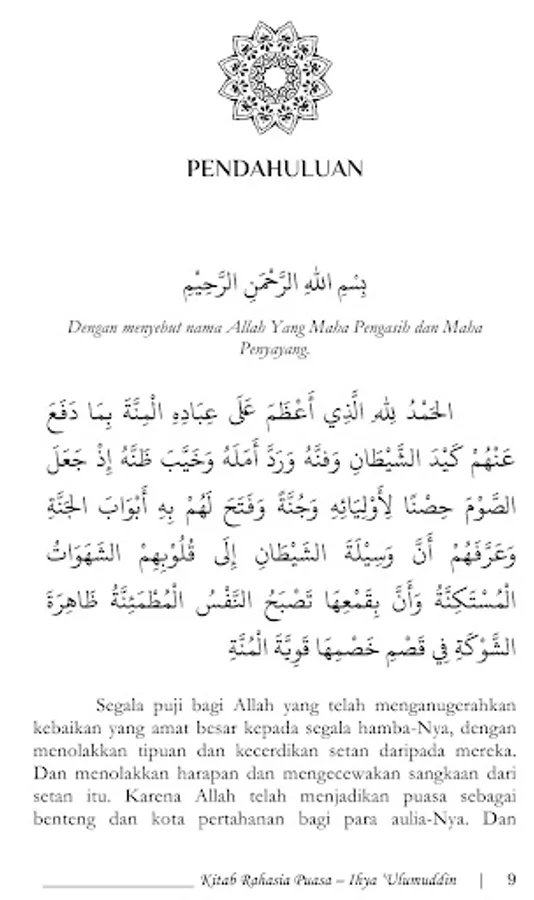 PENDAHULUAN
بِسْمِ اللهِ الرَّحْمَنِ الرَّحِيْمِ
Dengan menyebut nama Allah Yang Maha Pengasih dan Maha
Penyayang.
الحَمْدُ لِلّٰهِ الَّذِي أَعْظَمَ عَلَى عِبَادِهِ الْمِنَّةَ بِمَا دَفَعَ
عَنْهُمْ كَيْدَ الشَّيْطَانِ وَفنَّهُ وَرَدَّ أَمَلَهُ وَخَيَّبَ ظَنَّهُ إِذْ جَعَلَ
الصَّوْمَ حِصْنًا لِأَوْلِيَائِهِ وَجُنَّةً وَفَتَحَ لَهُمْ بِهِ أَبْوَابَ الجَنَّةِ
وَعَرَّفَهُمْ أَنَّ وَسِيْلَةَ الشَيْطَانِ إِلَى قُلُوْبِهِمْ الشَهَوَاتُ
الْمُسْتَكِنَّةُ وَأَنَّ بِقَمْعِهَا تَصْبَحُ النَّفْسُ الْمُطْمَئِنَّةُ ظَاهِرَةَ
الشَّوْكَةِ فِي قَصْمِ خَصْمِهَا قَوِيَّةَ الْمُنَّةِ
Segala puji bagi Allah yang telah menganugerahkan
kebaikan yang amat besar kepada segala hamba-Nya, dengan
menolakkan tipuan dan kecerdikan setan daripada mereka.
Dan menolakkan harapan dan mengecewakan sangkaan dari
setan itu. Karena Allah telah menjadikan puasa sebagai
benteng dan kota pertahanan bagi para aulia-Nya. Dan
Kitab Rahasia Puasa – Ihya 'Ulumuddin | 9